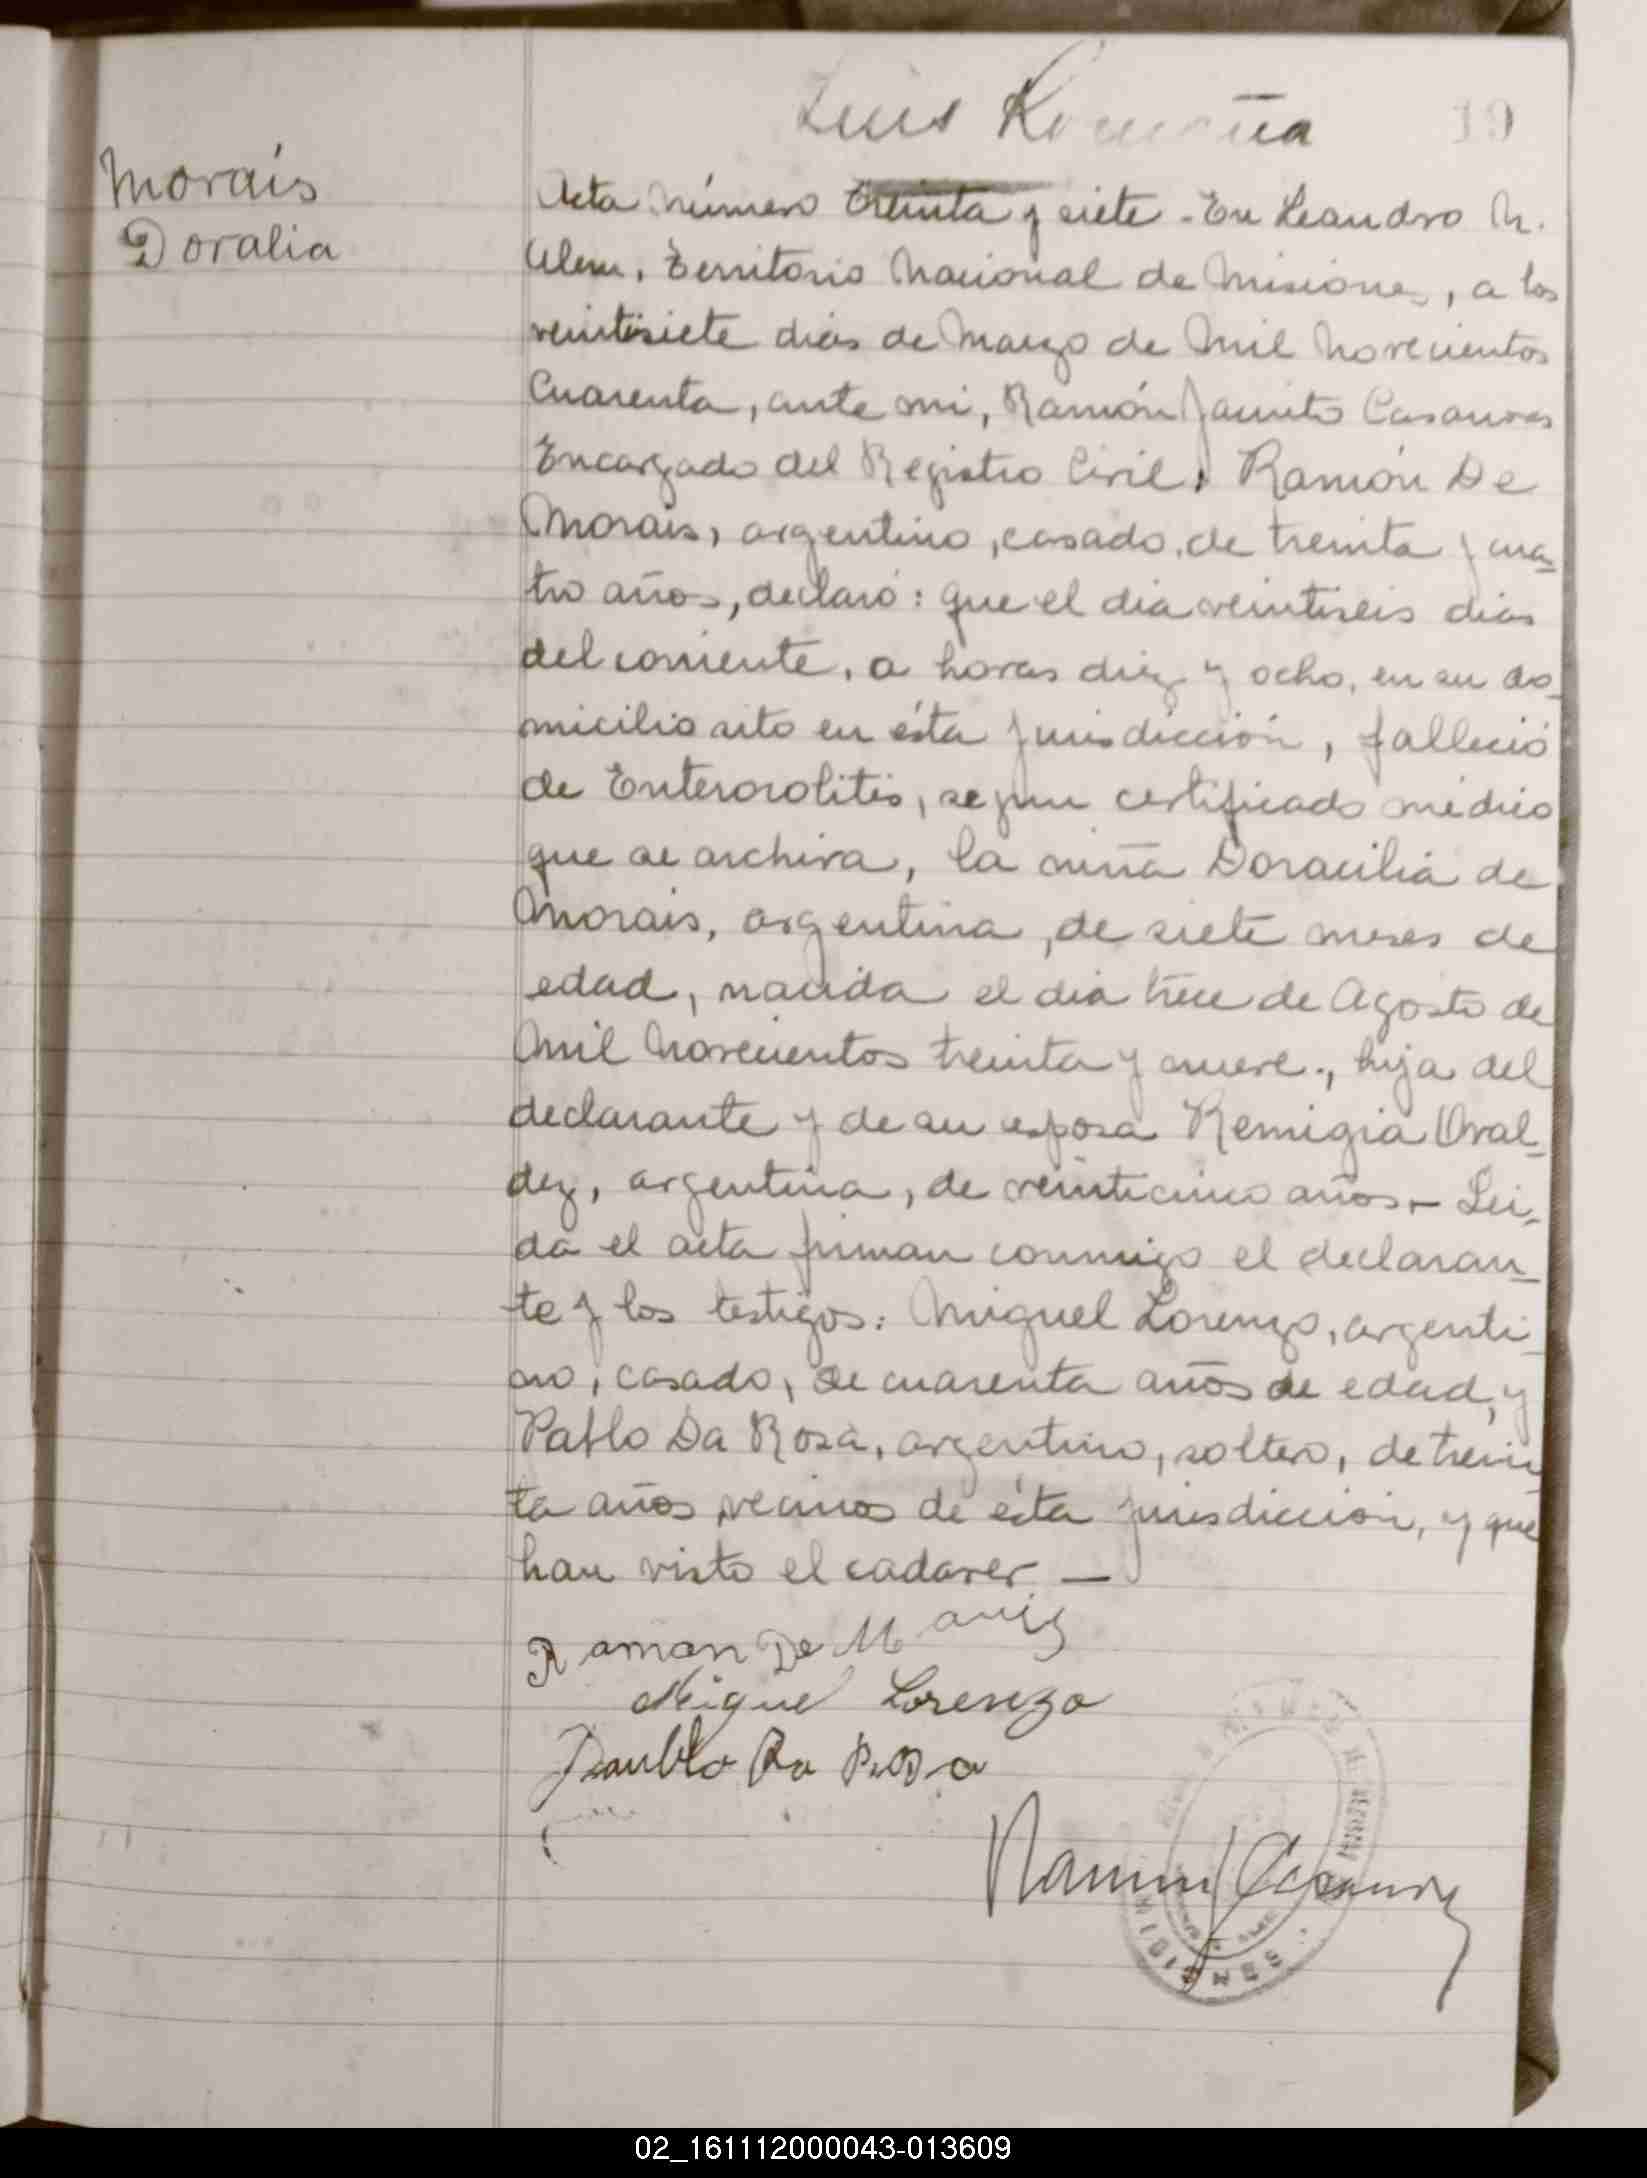 Luis
19
Morais
Doralia
Acta número treinta y siete - En Leandro N.
Alem, Territorio Nacional de Misiones, a los
veintisiete dias de Marzo de Mil Novecientos
Cuarenta, ante mi, Ramón Jacinto Casanovas
Encargado del Registro Civil, Ramón De
Morais, argentino, casado, de treinta y cua-
tro años, declaró: que el dia veintiseis dias
del corriente, a horas diez y ocho, en su do-
micilio sito en ésta jurisdicción, falleció
de Enterocolitis, segun certificado médico
que se archiva, la niña Doracilia de
Morais, argentina, de siete meses de
edad, nacida el dia trece de Agosto de
Mil Novecientos treinta y nueve., hija del
declarante y de su esposa Remigia Oval-
dez, argentina, de veinticinco años.- Lei-
da el acta firman conmigo el declaran-
te y los testigos: Miguel Lorenzo, argenti-
no, casado, de cuarenta años de edad, y
Pablo Da Rosa, argentino, soltero, de trein-
ta años, vecinos de ésta jurisdiccion, y que
han visto el cadaver. —
Raman De
Miguel Lorenzo
MISIONES
02_161112000043-013609